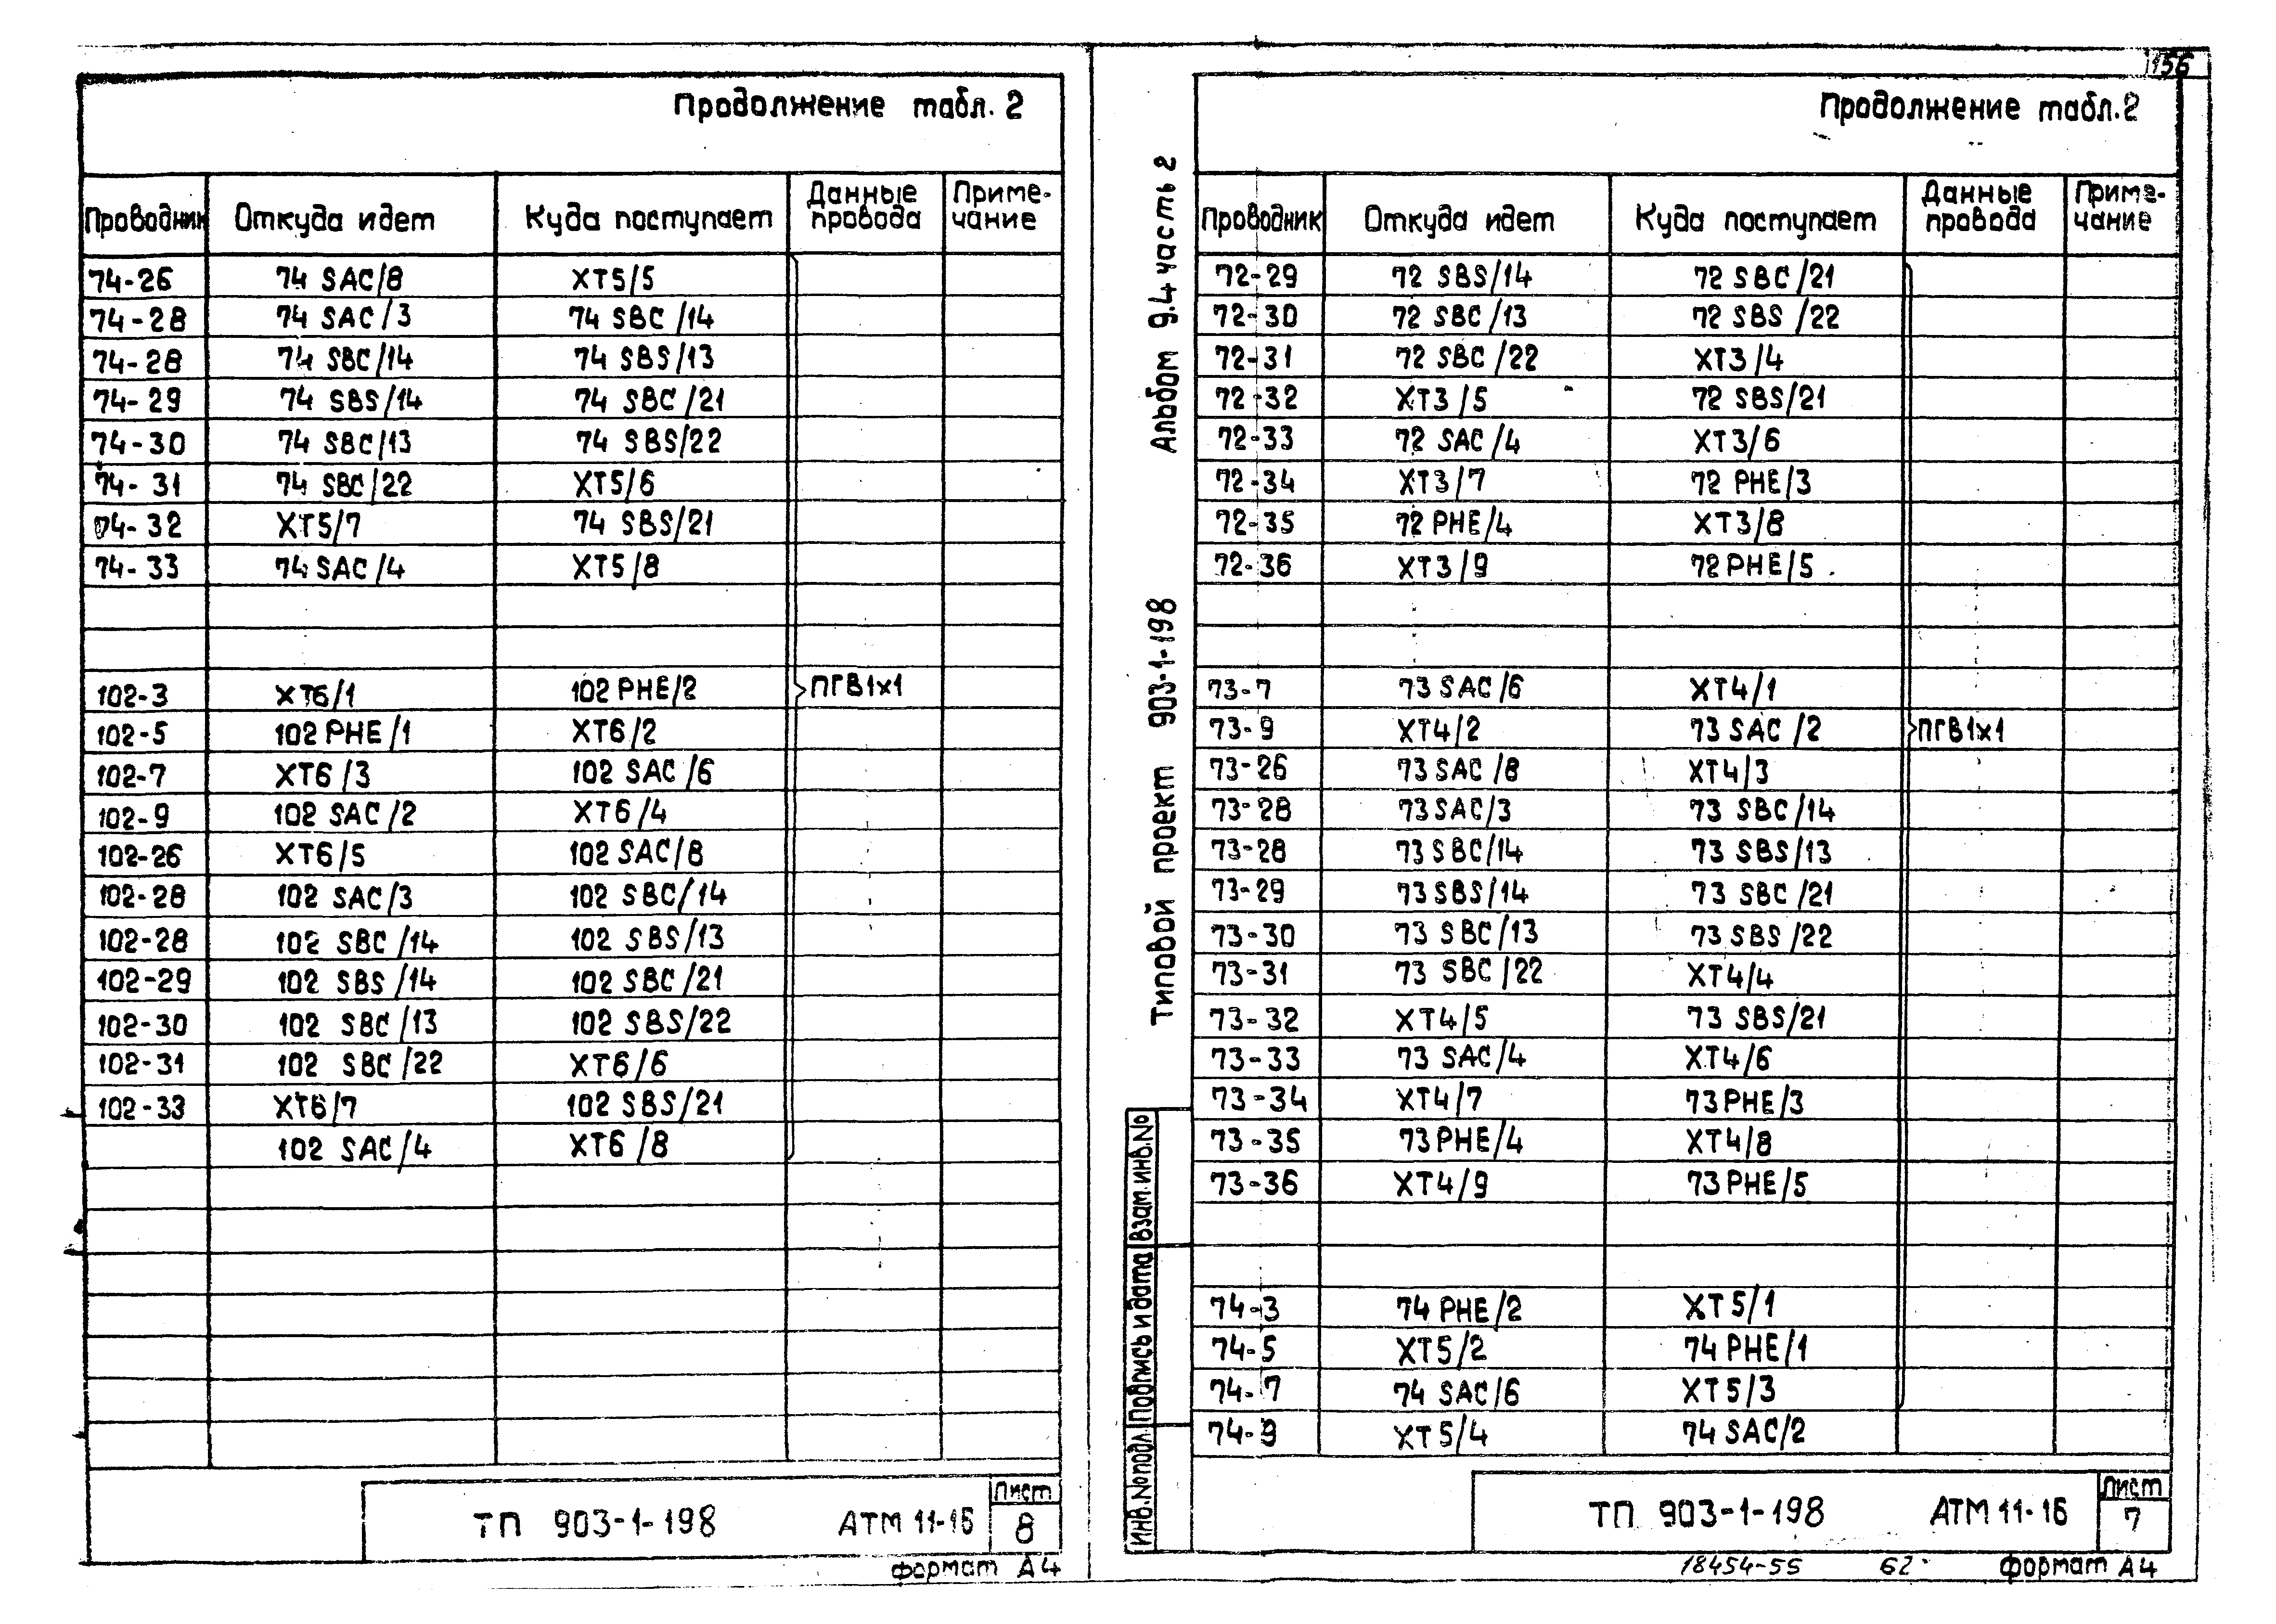 Продолжение табл. 2
Проводник Откуда идет Куда поступает Данные провода Приме-чание
74-26 74 SAC/8 XT5/5
74-28 74 SAC/3 74 SBC/14
74-28 74 SBC/14 74 SBS/13
74-29 74 SBS/14 74 SBC/21
74-30 74 SBC/13 74 SBS/22
74-31 74 SBC/22 XT5/6
74-32 XT5/7 74 SBS/21
74-33 74 SAC/4 XT5/8
102-3 XT6/1 102 PHE/2 ПГВ1х1
102-5 102 PHE/1 XT6/2
102-7 XT6/3 102 SAC/6
102-9 102 SAC/2 XT6/4
102-26 XT6/5 102 SAC/8
102-28 102 SAC/3 102 SBC/14
102-28 102 SBC/14 102 SBS/13
102-29 102 SBS/14 102 SBC/21
102-30 102 SBC/13 102 SBS/22
102-31 102 SBC/22 XT6/6
102-33 XT6/7 102 SBS/21
102 SAC/4 XT6/8
ТП 903-1-198 АТМ 11-16 Лист 8
формат А4
156
Альбом 9.4 часть 2
Типовой проект 903-1-198
Продолжение табл.2
Проводник Откуда идет Куда поступает Данные провода Приме-чание
72-29 72 SBS/14 72 SBC/21
72-30 72 SBC/13 72 SBS/22
72-31 72 SBC/22 XT3/4
72-32 XT3/5 72 SBS/21
72-33 72 SAC/4 XT3/6
72-34 XT3/7 72 PHE/3
72-35 72 PHE/4 XT3/8
72-36 XT3/9 72 PHE/5
73-7 73 SAC/6 XT4/1
73-9 XT4/2 73 SAC/2 ПГВ1х1
73-26 73 SAC/8 XT4/3
73-28 73 SAC/3 73 SBC/14
73-28 73 SBC/14 73 SBS/13
73-29 73 SBS/14 73 SBC/21
73-30 73 SBC/13 73 SBS/22
73-31 73 SBC/22 XT4/4
73-32 XT4/5 73 SBS/21
73-33 73 SAC/4 XT4/6
73-34 XT4/7 73 PHE/3
73-35 73 PHE/4 XT4/8
73-36 XT4/9 73 PHE/5
74-3 74 PHE/2 XT5/1
74-5 XT5/2 74 PHE/1
74-7 74 SAC/6 XT5/3
74-9 XT5/4 74 SAC/2
Инв.№подл. Подпись и дата Взам.инв.№
ТП 903-1-198 АТМ 11-16 Лист 7
18454-55 62 формат А4